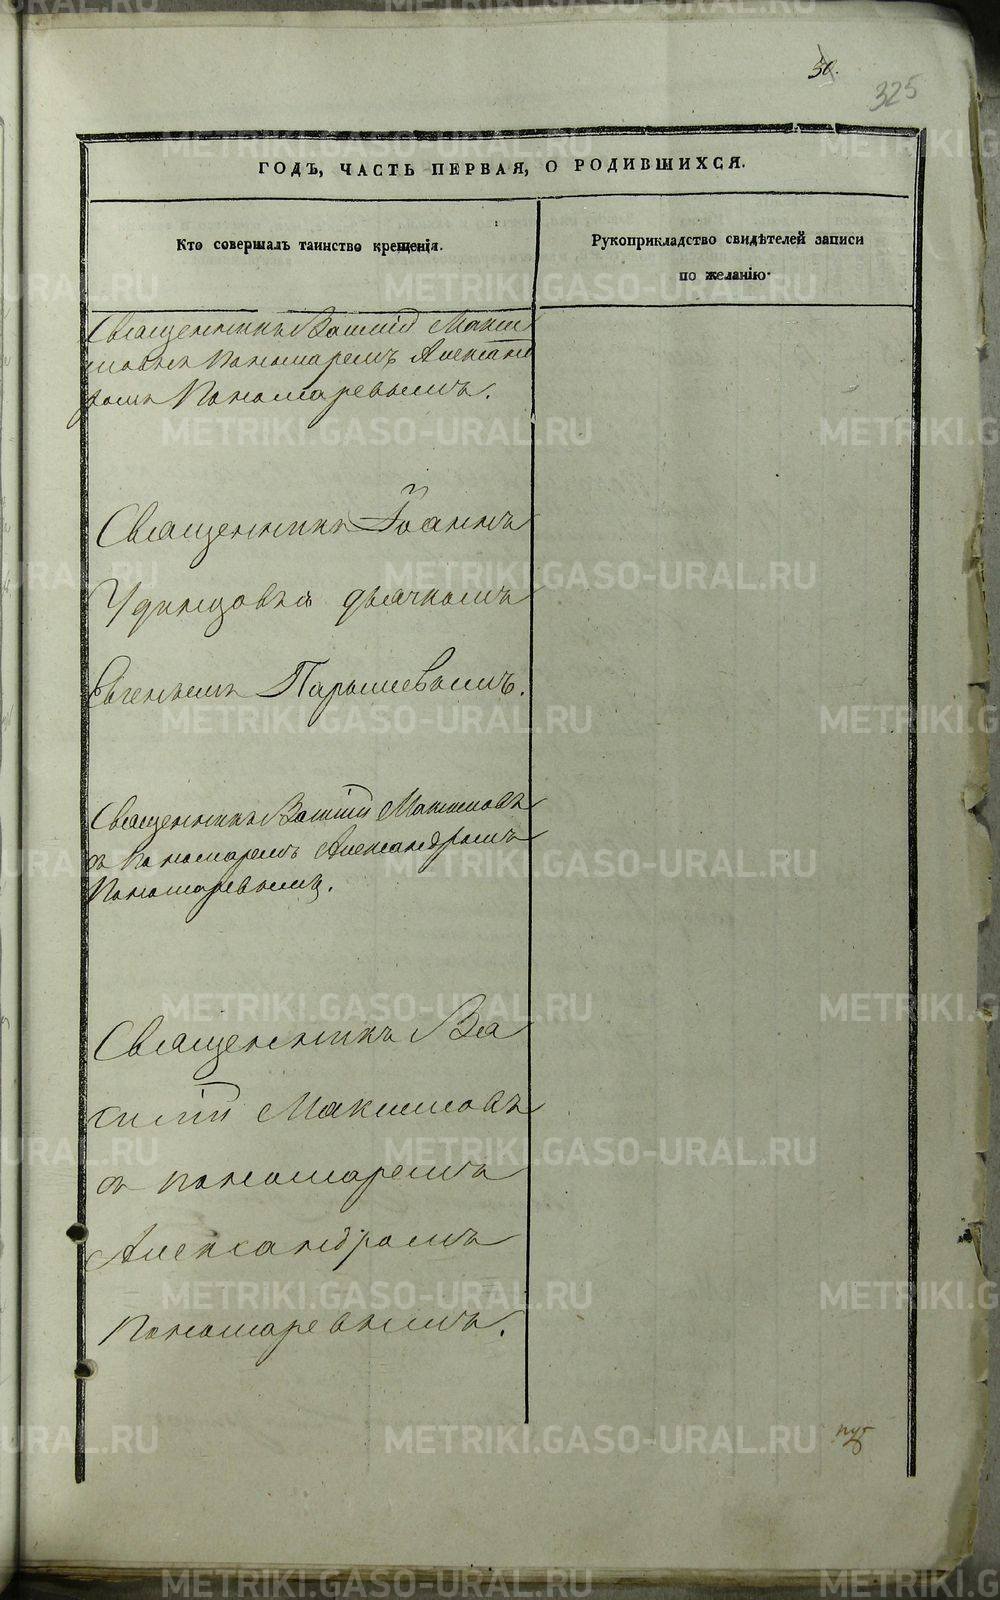 50.
325
ГОДЪ, ЧАСТЬ ПЕРВАЯ, О РОДИВШИХСЯ.
Кто совершалъ таинство крещенія.
Рукоприкладство свидѣтелей записи
по желанію.
Священникъ Василій Макси
мовъ съ пономаремъ Александ
ромъ Пономаревымъ.
Священникъ Іоаннъ
Удинцовъ съ дьячкомъ
Евгеньемъ Парышевымъ.
Священникъ Василій Максимовъ
съ пономаремъ Александромъ
Пономаревымъ.
Священникъ Ва
силій Максимовъ
съ пономаремъ
Александромъ
Пономаревымъ.
METRIKI.GASO-URAL.RU